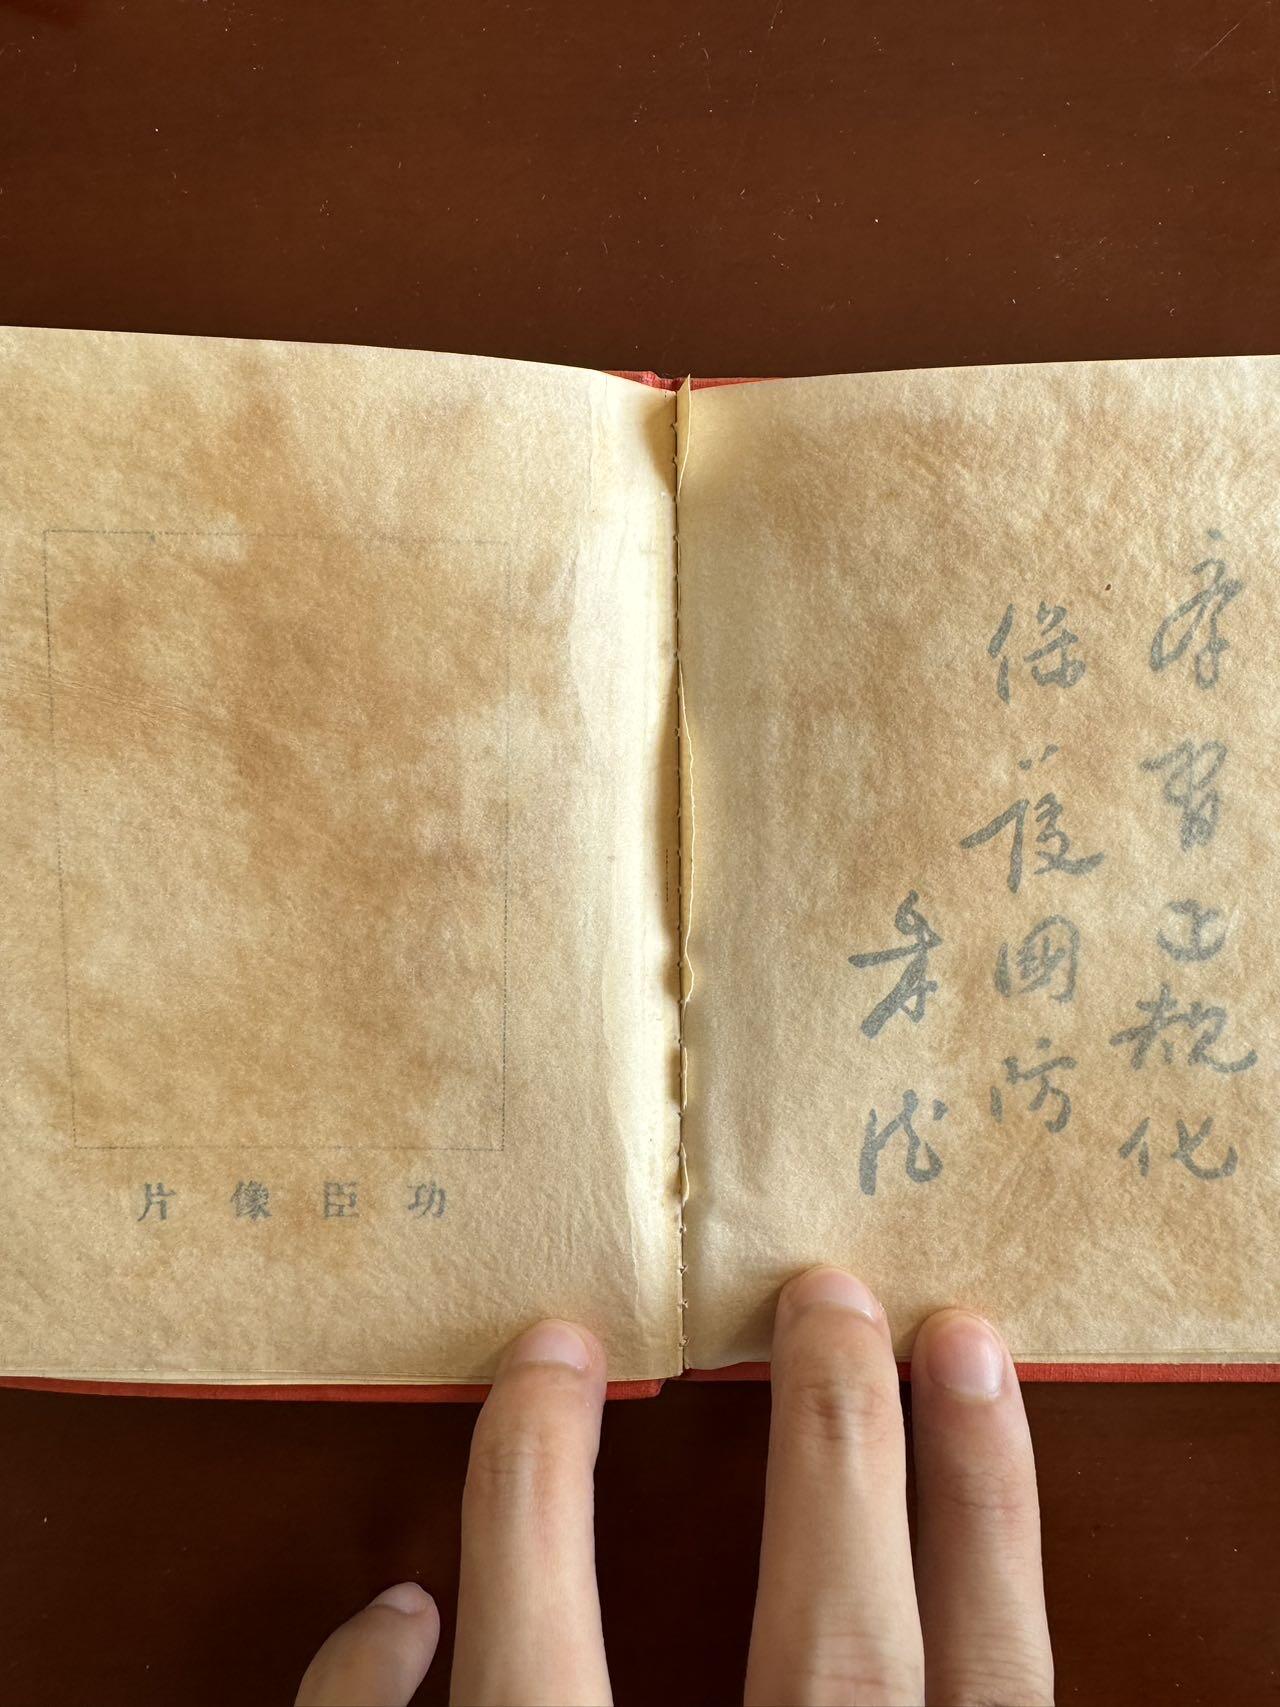 學習正規化
保護國防
朱德
功臣像片